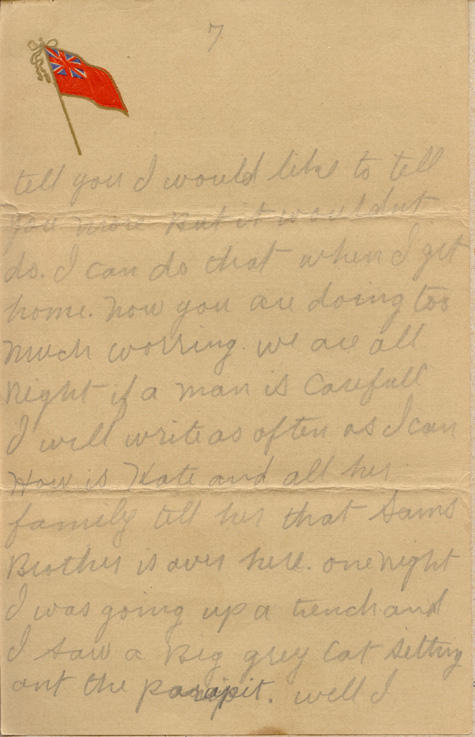 7
tell you I would like to tell
you more But it wouldnt
do. I can do that when I get
home. now you are doing too
much worring. we are all
Right if a man is Carefull
I will write as often as I can
How is Kate and all her
family tell her that Sams
Brother is over here. one night
I was going up a trench and
I saw a Big grey Cat setting
ont the parapit. well I